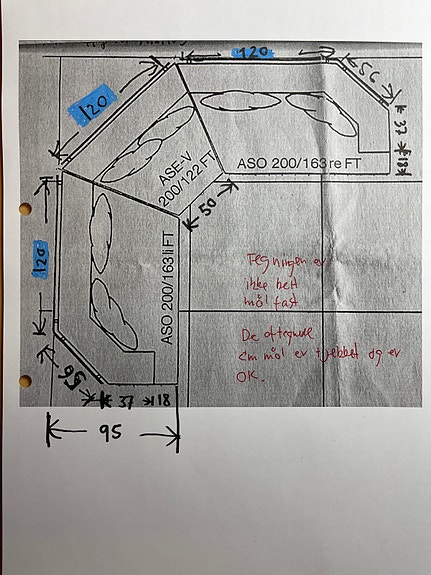 120
120
56
37
18
ASE-V
200/122 FT
ASO 200/163 re FT
50
120
ASO 200/163 li FT
Tegningen er
ikke helt
mål fast
De
cm mål er og er
OK.
56
37
18
95